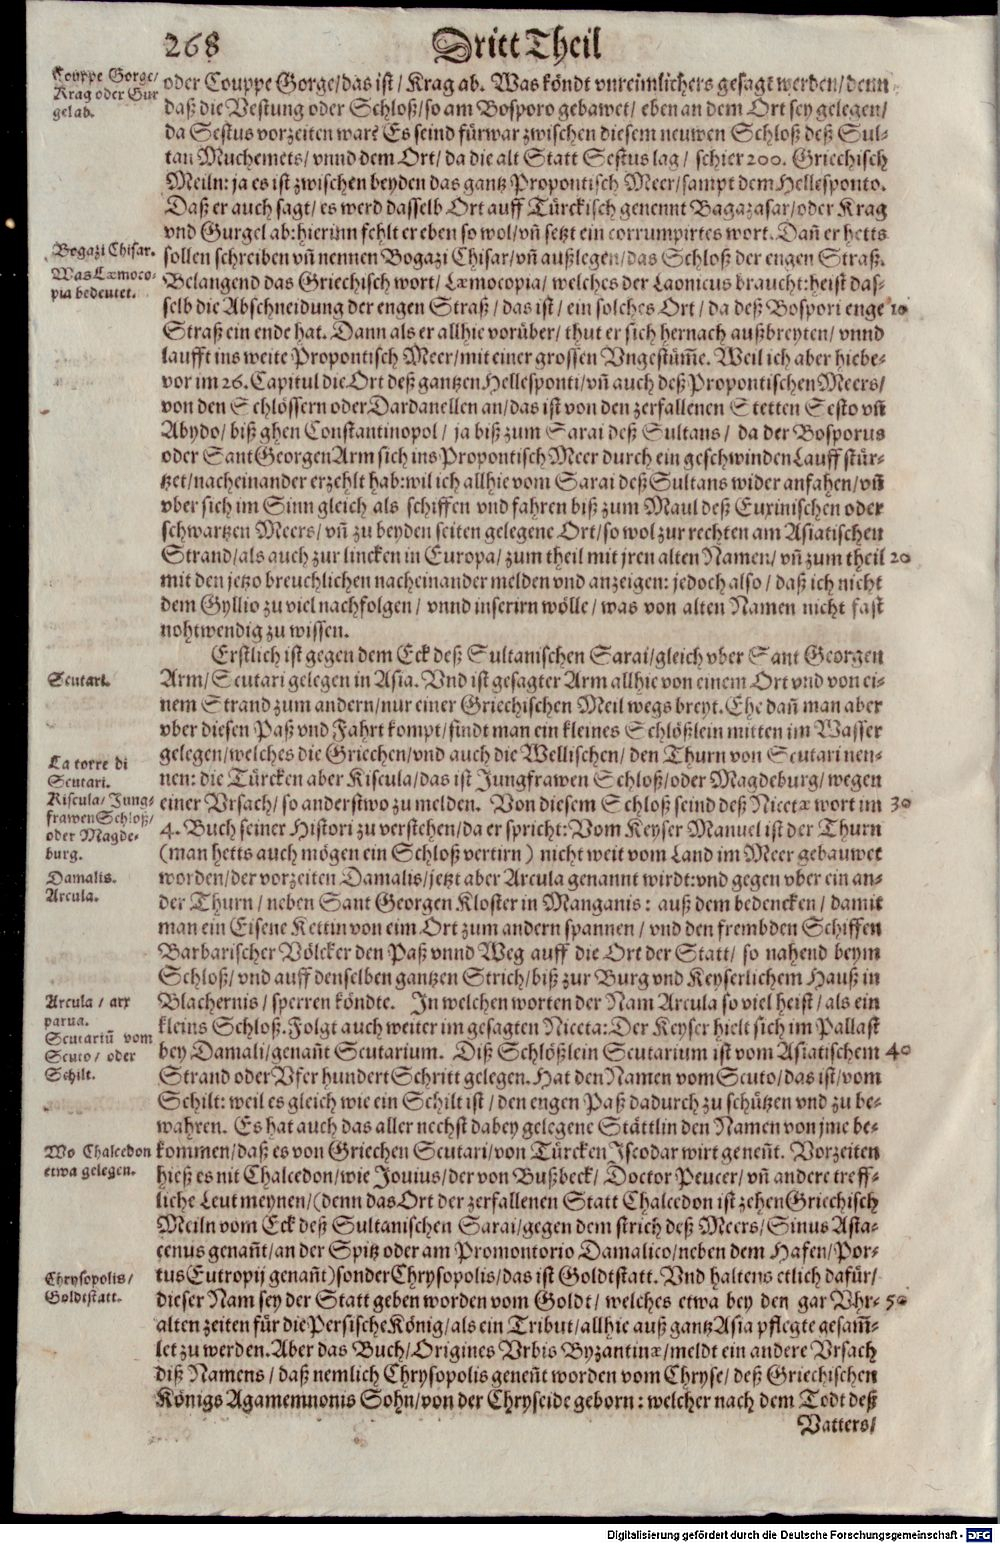 268
Dritt Theil
Couppe Gorge/
Krag oder Gur
gel ab.
oder Couppe Gorge/ das ist/ Krag ab. Was köndt vnreimlichers gesagt werden/ denn
daß die Vestung oder Schloß/ so am Bosporo gebawet/ eben an dem Ort sey gelegen/
da Sestus vorzeiten war? Es seind fürwar zwischen diesem neuwen Schloß deß Sul-
tan Muchemets/ vnnd dem Ort/ da die alt Statt Sestus lag/ schier 200. Griechisch
Meiln: ja es ist zwischen beyden das gantz Propontisch Meer/ sampt dem Hellesponto.
Daß er auch sagt/ es werd dasselb Ort auff Türckisch genennt Bagazasar/ oder Krag
vnd Gurgel ab: hierinn fehlt er eben so wol/ vñ setzt ein corrumpirtes wort. Dañ er hetts
Bogazi Chisar.
sollen schreiben vñ nennen Bogazi Chisar/ vñ außlegen/ das Schloß der engen Straß.
Was Læmoco-
pia bedeutet.
Belangend das Griechisch wort/ Læmocopia/ welches der Laonicus braucht: heist das-
selb die Abschneidung der engen Straß/ das ist/ ein solches Ort/ da deß Bospori enge 10
Straß ein ende hat. Dann als er allhie vorüber/ thut er sich hernach außbreyten/ vnnd
laufft ins weite Propontisch Meer/ mit einer grossen Vngestüm̃e. Weil ich aber hiebe-
vor im 26. Capitul die Ort deß gantzen Hellesponti/ vñ auch deß Propontischen Meers/
von den Schlössern oder Dardanellen an/ das ist von den zerfallenen Stetten Sesto vñ
Abydo/ biß ghen Constantinopol/ ja biß zum Sarai deß Sultans/ da der Bosporus
oder Sant Georgen Arm sich ins Propontisch Meer durch ein geschwinden Lauff stür-
tzet/ nacheinander erzehlt hab: wil ich allhie vom Sarai deß Sultans wider anfahen/ vñ
vber sich im Sinn gleich als schiffen vnd fahren biß zum Maul deß Euxinischen oder
schwartzen Meers/ vñ zu beyden seiten gelegene Ort/ so wol zur rechten am Asiatischen
Strand/ als auch zur lincken in Europa/ zum theil mit jren alten Namen/ vñ zum theil 20
mit den jetzo breuchlichen nacheinander melden vnd anzeigen: jedoch also/ daß ich nicht
dem Gyllio zu viel nachfolgen/ vnnd inserirn wölle/ was von alten Namen nicht fast
nohtwendig zu wissen.
Erstlich ist gegen dem Eck deß Sultanischen Sarai/ gleich vber Sant Georgen
Scutari.
Arm/ Scutari gelegen in Asia. Vnd ist gesagter Arm allhie von einem Ort vnd von ei-
nem Strand zum andern/ nur einer Griechischen Meil wegs breyt. Ehe dañ man aber
vber diesen Paß vnd Fahrt kompt/ findt man ein kleines Schlößlein mitten im Wasser
gelegen/ welches die Griechen/ vnd auch die Wellischen/ den Thurn von Scutari nen-
La torre di
Scutari.
Kiscula/ Jung-
frawen Schloß/
oder Magde-
burg.
nen: die Türcken aber Kiscula/ das ist Jungfrawen Schloß/ oder Magdeburg/ wegen
einer Vrsach/ so anderstwo zu melden. Von diesem Schloß seind deß Nicetæ wort im 30
4. Buch seiner Histori zu verstehen/ da er spricht: Vom Keyser Manuel ist der Thurn
(man hetts auch mögen ein Schloß vertirn) nicht weit vom Land im Meer gebauwet
Damalis.
Arcula.
worden/ der vorzeiten Damalis/ jetzt aber Arcula genannt wirdt: vnd gegen vber ein an-
der Thurn/ neben Sant Georgen Kloster in Manganis: auß dem bedencken/ damit
man ein Eisene Kettin von eim Ort zum andern spannen/ vnd den frembden Schiffen
Barbarischer Völcker den Paß vnnd Weg auff die Ort der Statt/ so nahend beym
Schloß/ vnd auff denselben gantzen Strich/ biß zur Burg vnd Keyserlichem Hauß in
Arcula/ arx
parua.
Scutariũ vom
Scuto/ oder
Schilt.
Blachernis/ sperren köndte. In welchen worten der Nam Arcula so viel heist/ als ein
kleins Schloß. Folgt auch weiter im gesagten Niceta: Der Keyser hielt sich im Pallast
bey Damali/ genañt Scutarium. Diß Schlößlein Scutarium ist vom Asiatischem 40
Strand oder Vfer hundert Schritt gelegen. Hat den Namen vom Scuto/ das ist/ vom
Schilt: weil es gleich wie ein Schilt ist/ den engen Paß dadurch zu schützen vnd zu be-
wahren. Es hat auch das aller nechst dabey gelegene Stättlin den Namen von jme be-
Wo Chalcedon
etwa gelegen.
kommen/ daß es von Griechen Scutari/ von Türcken Iscodar wirt geneñt. Vorzeiten
hieß es nit Chalcedon/ wie Jouius/ der von Bußbeck/ Doctor Peucer/ vñ andere treff-
liche Leut meynen/ (denn das Ort der zerfallenen Statt Chalcedon ist zehen Griechisch
Meiln vom Eck deß Sultanischen Sarai/ gegen dem strich deß Meers/ Sinus Asta-
cenus genañt/ an der Spitz oder am Promontorio Damalico/ neben dem Hafen/ Por-
Chrysopolis/
Goldtstatt.
tus Eutropij genañt) sonder Chrysopolis/ das ist Goldtstatt. Vnd haltens etlich dafür/
dieser Nam sey der Statt geben worden vom Goldt/ welches etwa bey den gar Vhr- 50
alten zeiten für die Persische König/ als ein Tribut/ allhie auß gantz Asia pflegte gesam̃-
let zu werden. Aber das Buch/ Origines Vrbis Byzantinæ/ meldt ein andere Vrsach
diß Namens/ daß nemlich Chrysopolis geneñt worden vom Chryse/ deß Griechischen
Königs Agamemnonis Sohn/ von der Chryseide geborn: welcher nach dem Todt deß
Vatters/
Digitalisierung gefördert durch die Deutsche Forschungsgemeinschaft - DFG